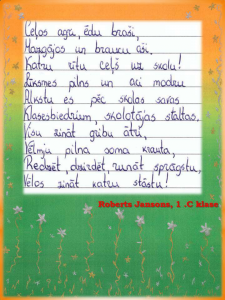 Ceļos agri, ēdu braši,
Mazgājos un braucu āši,
Katru rītu ceļš uz skolu!
Līksmes pilns un aci modru
Alkstu es pēc skolas saras
Klasesbiedriem, skolotājas staltas.
Visu zināt gribu ātri,
Vēlmju pilna soma krauta,
Redzēt, dzirdēt, runāt sprāgstu,
Vēlos zināt katru stāstu!
Roberts Jansons, 1 .C klase